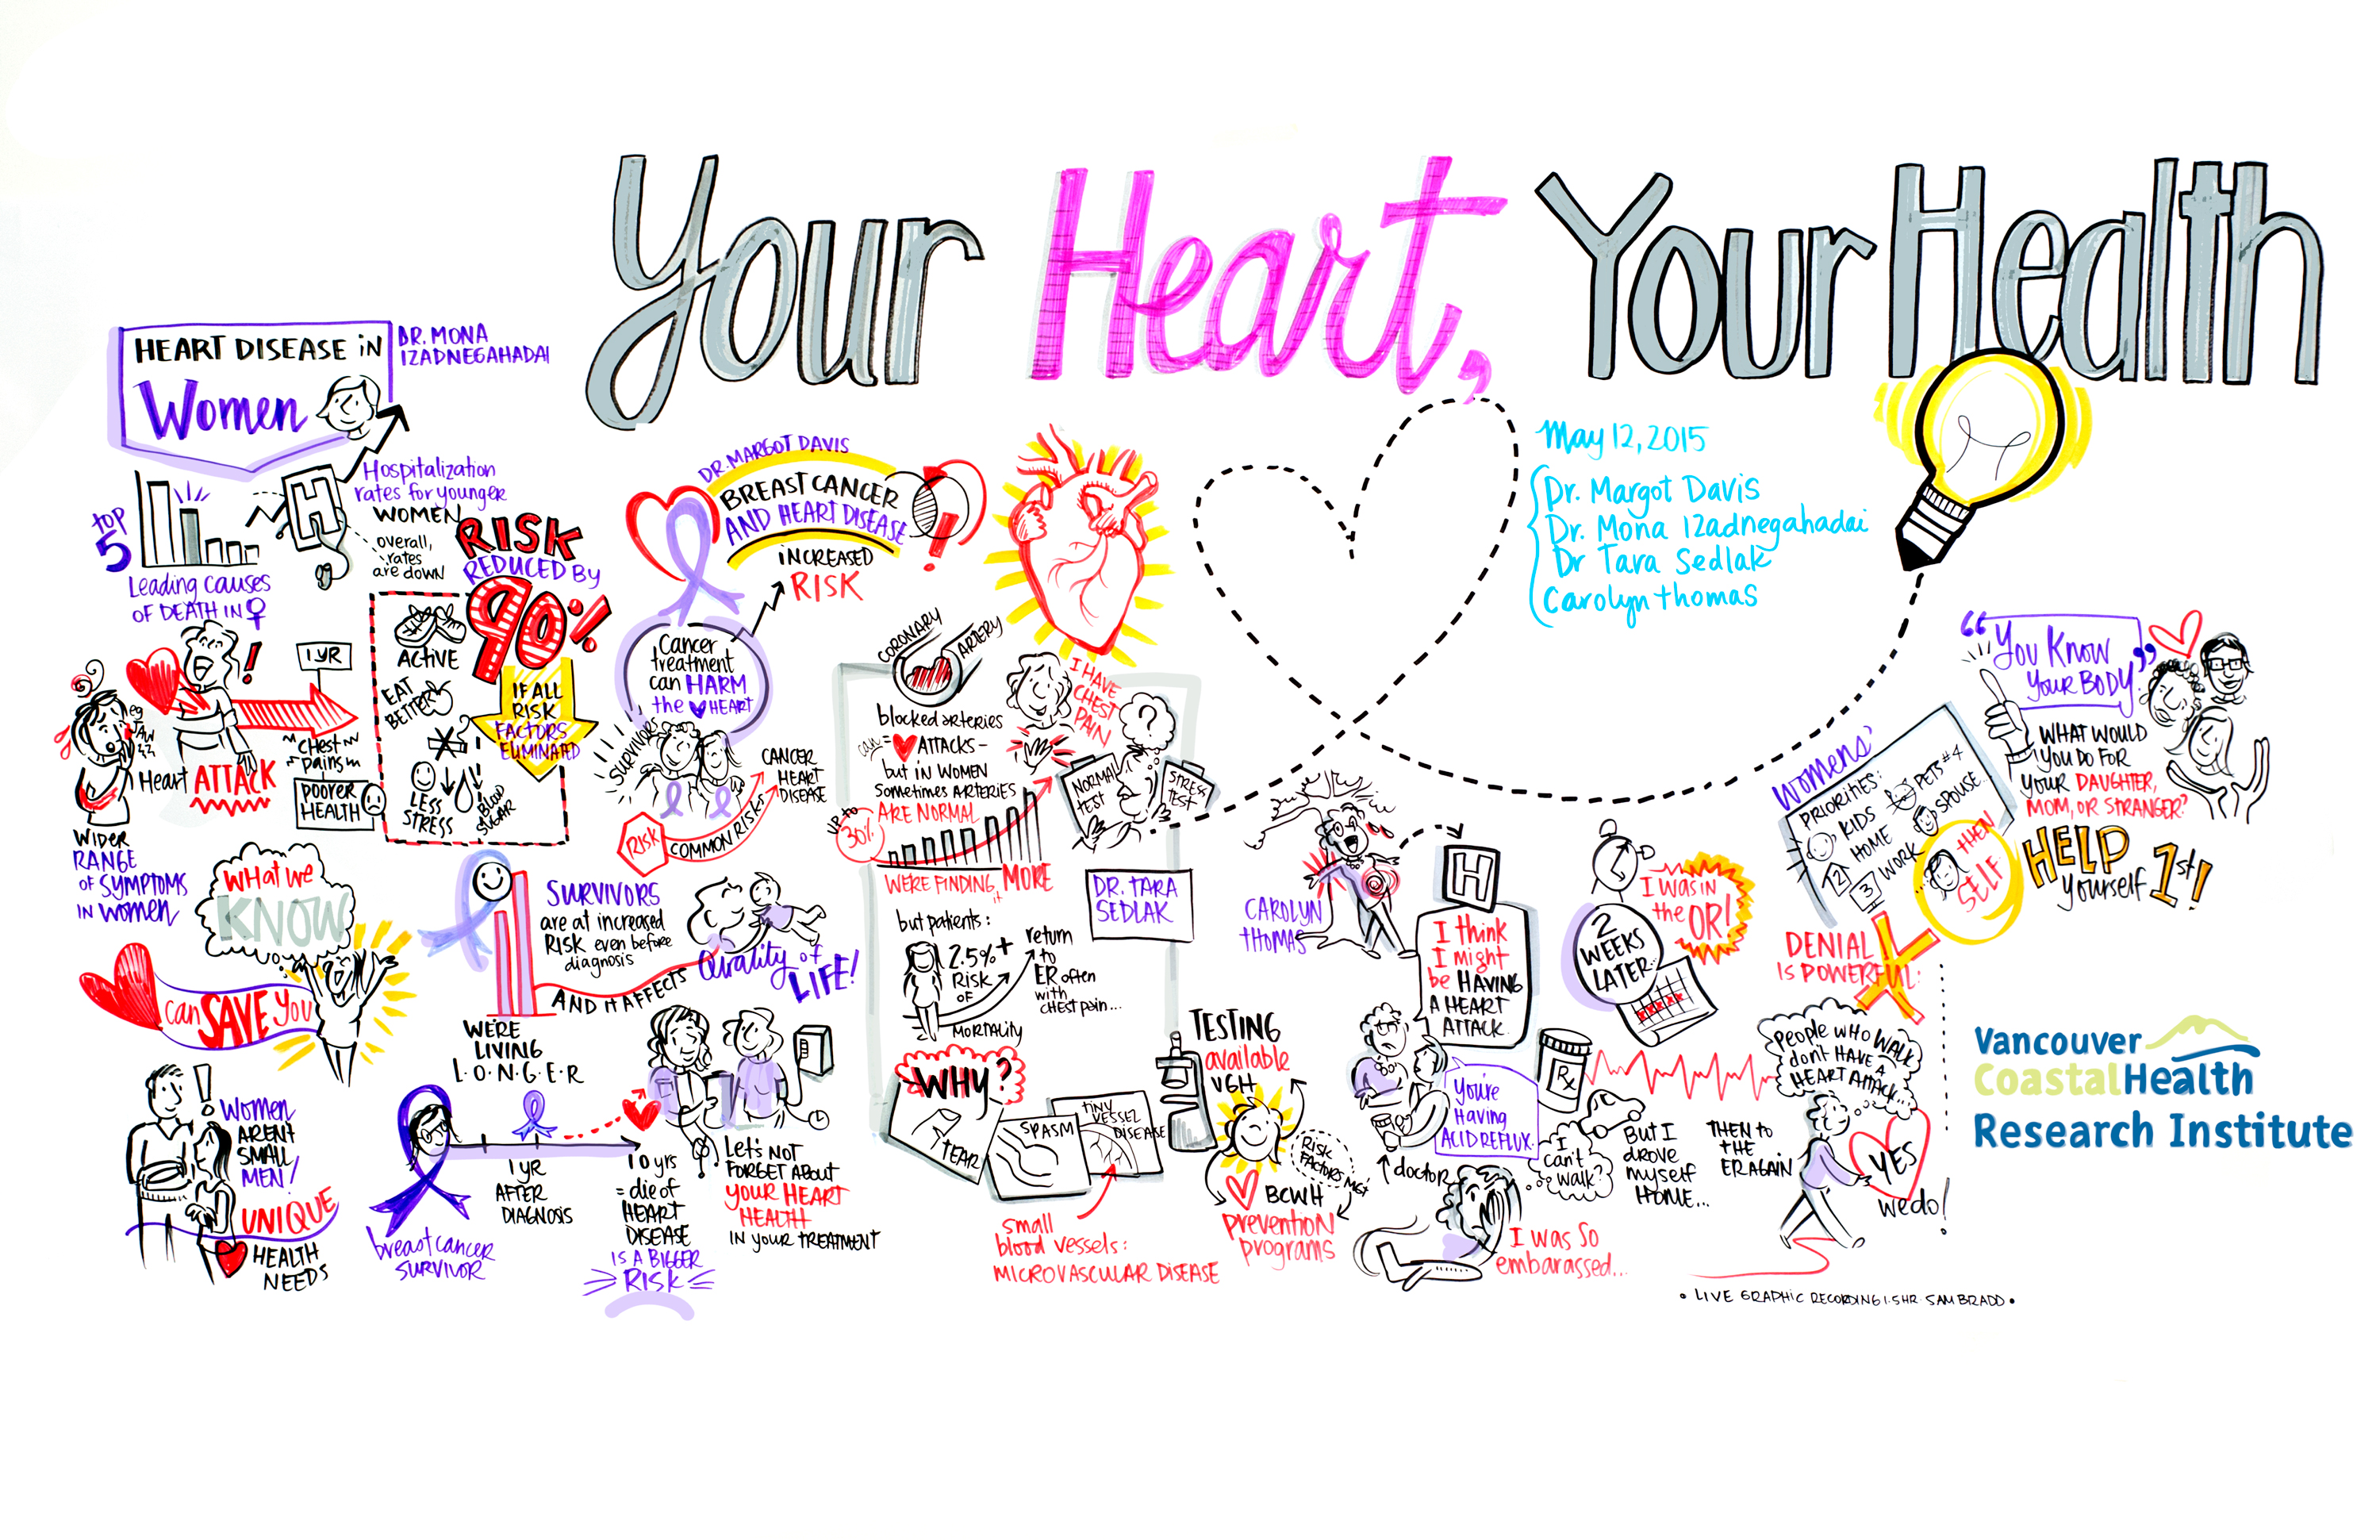 Your Heart, Your Health
May 12, 2015
Dr. Margot Davis
Dr. Mona Izadnegahadai
Dr Tara Sedlak
Carolyn Thomas
HEART DISEASE in
Women
DR. MONA
IZADNEGAHADAI
TOP
5
Leading causes
OF DEATH IN ♀
H
Hospitalization
rates for younger
WOMEN
overall,
rates
are down
RISK
REDUCED BY
90%
IF ALL
RISK
FACTORS
ELIMINATED
ACTIVE
EAT
BETTER
LESS
STRESS
BLOOD
SUGAR
eg
JAW
Heart ATTACK
1 YR
chest
pains
POORER
HEALTH
WIDER
RANGE
OF SYMPTOMS
IN WOMEN
WHAT WE
KNOW
can SAVE You
Women
AREN'T
SMALL
MEN!
UNIQUE
HEALTH
NEEDS
DR. MARGOT DAVIS
BREAST CANCER
AND HEART DISEASE
INCREASED
RISK
Cancer
treatment
can HARM
the ♥ HEART
SURVIVORS
RISK
COMMON RISKS
CANCER
HEART
DISEASE
SURVIVORS
are at increased
RISK even before
diagnosis
AND IT AFFECTS
Quality of
LIFE!
WE'RE
LIVING
L·O·N·G·E·R
breast cancer
SURVIVOR
1 YR
AFTER
DIAGNOSIS
10 yrs
= die of
HEART
DISEASE
IS A BIGGER
RISK
Let's NOT
FORGET ABOUT
YOUR HEART
HEALTH
IN YOUR TREATMENT
CORONARY
ARTERY
blocked arteries
can = ♥ ATTACKS -
but IN WOMEN
Sometimes ARTERIES
ARE NORMAL
UP TO
30%
WE'RE FINDING it MORE
I HAVE
CHEST
PAIN
?
NORMAL
TEST
STRESS
TEST
DR. TARA
SEDLAK
but patients:
2.5% +
RISK
OF
MORTALITY
return
to
ER often
with
CHEST pain...
WHY?
TEAR
SPASM
TINY
VESSEL
DISEASE
small
blood vessels:
MICROVASCULAR DISEASE
TESTING
available
VGH
RISK
FACTORS MGT
BCWH
prevention
programs
CAROLYN
THOMAS
H
I think
I might
be HAVING
A HEART
ATTACK
You're
Having
ACID REFLUX.
doctor
2
WEEKS
LATER...
I WAS IN
the OR!
Rx
I
can't
walk?
BUT I
drove
myself
HOME...
THEN to
THE
ER AGAIN
I WAS SO
embarassed...
Womens'
PRIORITIES:
KIDS
HOME
WORK
2
3
PETS #4
SPOUSE...
THEN
SELF
DENIAL
IS POWERFUL:
PEOPLE WHO WALK
don't HAVE A
HEART ATTACK...
YES
we do!
"You Know
Your BODY"
WHAT WOULD
YOU DO FOR
YOUR DAUGHTER,
MOM, OR STRANGER?
HELP
yourself 1st!
Vancouver
CoastalHealth
Research Institute
• LIVE GRAPHIC RECORDING 1.5HR SAM BRADD •